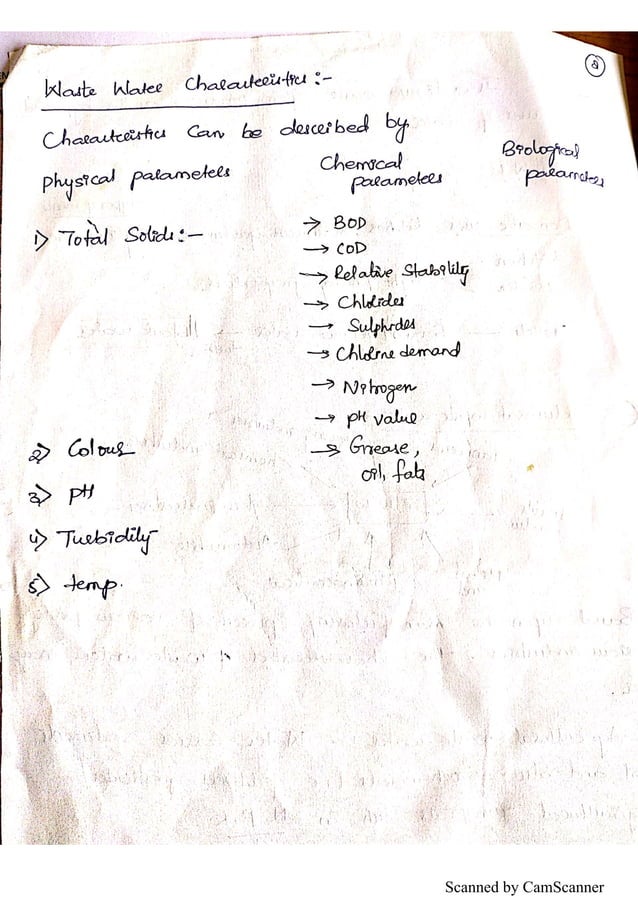 8
Waste Water Characteristics :-
Characteristics can be described by
Physical parameters
Chemical
parameters
Biological
parameters
1) Total Solids :-
→ BOD
→ COD
→ Relative Stability
→ Chlorides
→ Sulphides
→ Chlorine demand
→ Nitrogen
→ pH value
→ Grease,
oil, fats
2) Colour
3) pH
4) Turbidity
5) temp.
Scanned by CamScanner